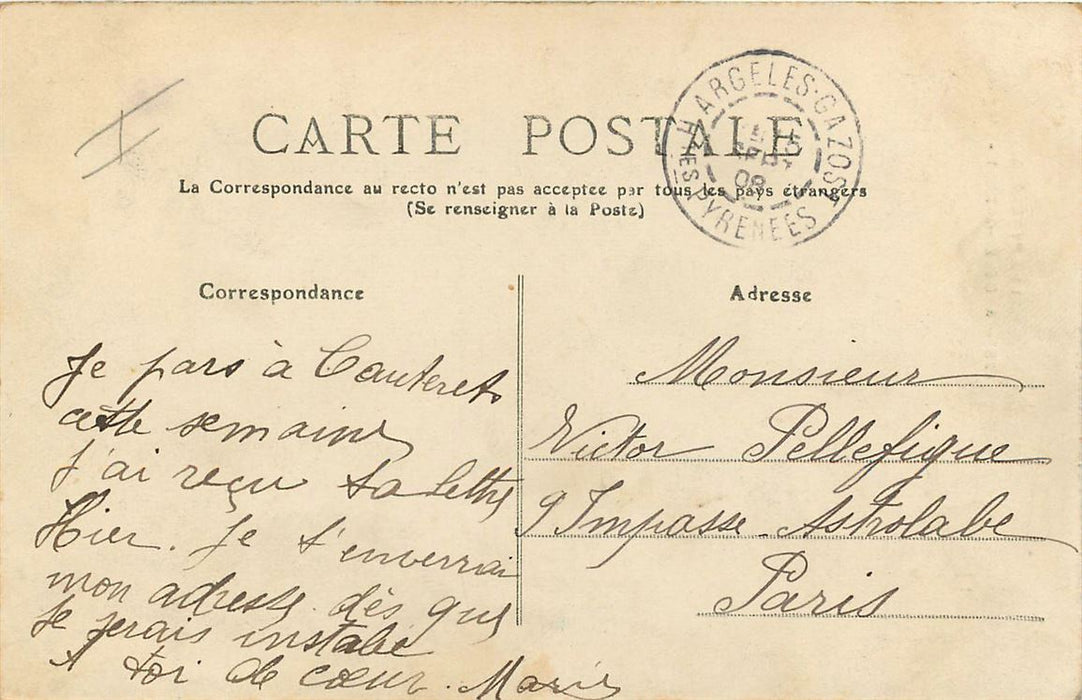 CARTE POSTALE
La Correspondance au recto n'est pas acceptee par tous les pays étrangers
(Se renseigner à la Poste)
ARGELÈS-GAZOST
SEPT
09
HTES PYRENEES
Correspondance
Je pars à Cauterets
cette semaine
J'ai reçu ta lettre
Hier. Je t'enverrai
mon adresse dès que
je serais instalé
A toi de cœur. Marie
Adresse
Monsieur
Victor Pellefigue
9 Impasse Astrolabe
Paris